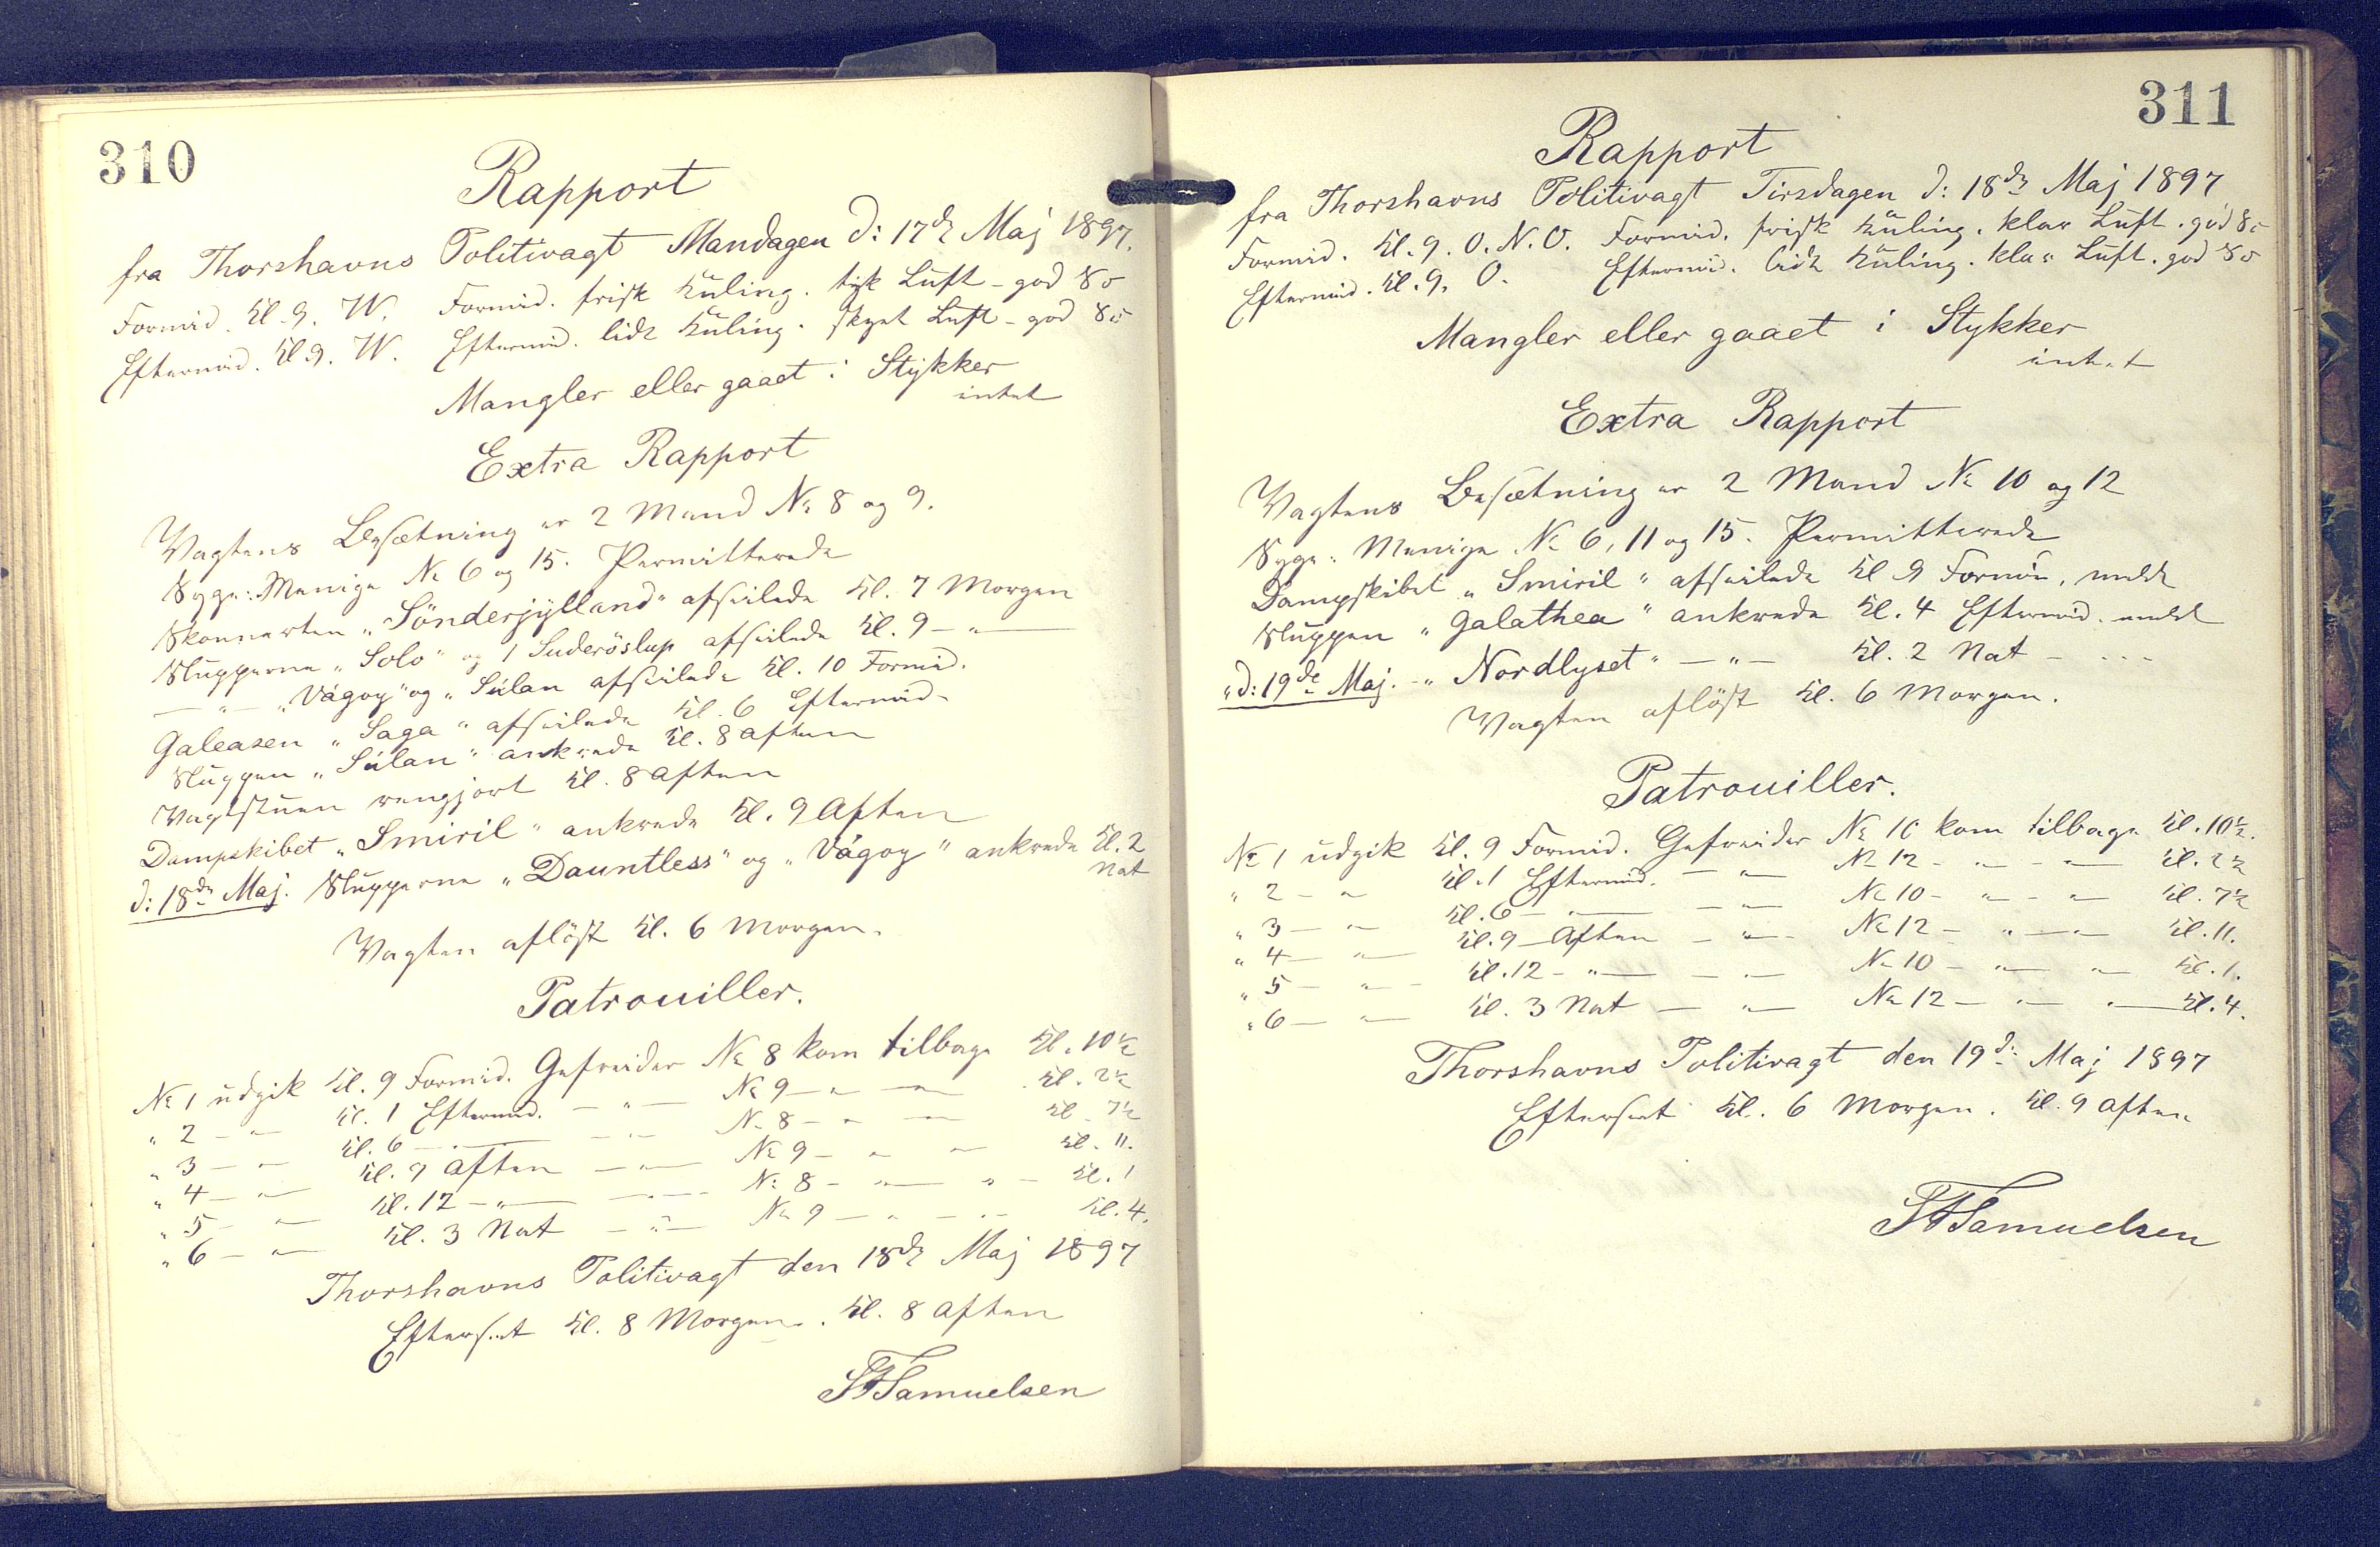 310
Rapport
fra Thorshavns Politivagt Mandagen d: 17de Maj 1897.
Formid. Kl. 9. W. Formid. frisk Kuling. tyk Luft - god Sö
Eftermid. Kl. 9. W. Eftermid. lidt Kuling. skyet Luft - god Sö
Mangler eller gaaet i Stykker
intet
Extra Rapport
Vagtens Besætning er 2 Mand No 8 og 9.
Syge: Menige No 6 og 15. Permitterede
Skonnerten "Sönderjylland" afseilede Kl. 7 Morgen
Slupperne "Solo" og 1 Suderöslup afseilede Kl. 9 - " -
- " - "Vágoy" og "Súlan afseilede Kl. 10 Formid.
Galeasen "Saga" afseilede Kl. 6 Eftermid.
Sluppen "Súlan" ankrede Kl. 8 Aften
Vagtstuen rengjort Kl. 8 Aften
Dampskibet "Smiril" ankrede Kl. 9 Aften
d: 18de Maj. Slupperne "Dauntless" og "Vágoy" ankrede Kl. 2
Nat
Vagten aflöst Kl. 6 Morgen.
Patrouiller.
No 1 udgik Kl. 9 Formid. Gefreider No 8 kom tilbage Kl. 10½
" 2 - " - Kl. 1 Eftermid. - " - No 9 - " - " - Kl. 2½
" 3 - " - Kl. 6 - " - - " - No 8 - " - " - Kl. 7½
" 4 - " - Kl. 9 Aften - " - No 9 - " - " - Kl. 11.
" 5 - " - Kl. 12 - " - - " - No 8 - " - " - Kl. 1
" 6 - " - Kl. 3 Nat - " - No 9 - " - " - Kl. 4.
Thorshavns Politivagt den 18de Maj 1897
Efterset Kl. 8 Morgen. Kl. 8 Aften
Samuelsen
311
Rapport
fra Thorshavns Politivagt Tirsdagen d: 18de Maj 1897
Formid. Kl. 9. O.N.O. Formid. frisk Kuling. klar Luft. god Sö
Eftermid. Kl. 9. O. Eftermid. lidt Kuling. klar Luft. god Sö
Mangler eller gaaet i Stykker
intet
Extra Rapport
Vagtens Besætning er 2 Mand No 10 og 12
Syge: Menige No 6, 11 og 15. Permitterede
Dampskibet "Smiril" afseilede Kl 9 Formid, meldt
Sluppen "Galathea" ankrede Kl. 4 Eftermid. meldt
"d: 19de Maj. - " Nordlyset" - " - Kl. 2 Nat - " -
Vagten aflöst Kl. 6 Morgen.
Patrouiller.
No 1 udgik Kl. 9 Formid. Gefreider No 10 kom tilbage Kl. 10½.
" 2 - " Kl. 1 Eftermid. - " - No 12 - " - " - Kl. 2½
" 3 - " Kl. 6 - " - - " - No 10 - " - " - Kl. 7½
" 4 - " - Kl. 9 - Aften - " - No 12 - " - " - Kl. 11.
" 5 - " - Kl. 12 - " - - " - No 10 - " - " - Kl. 1.
" 6 - " - Kl. 3 Nat - " - No 12 - " - " - Kl. 4.
Thorshavns Politivagt den 19de Maj 1897
Efterset Kl. 6 Morgen. Kl. 9 Aften
Samuelsen